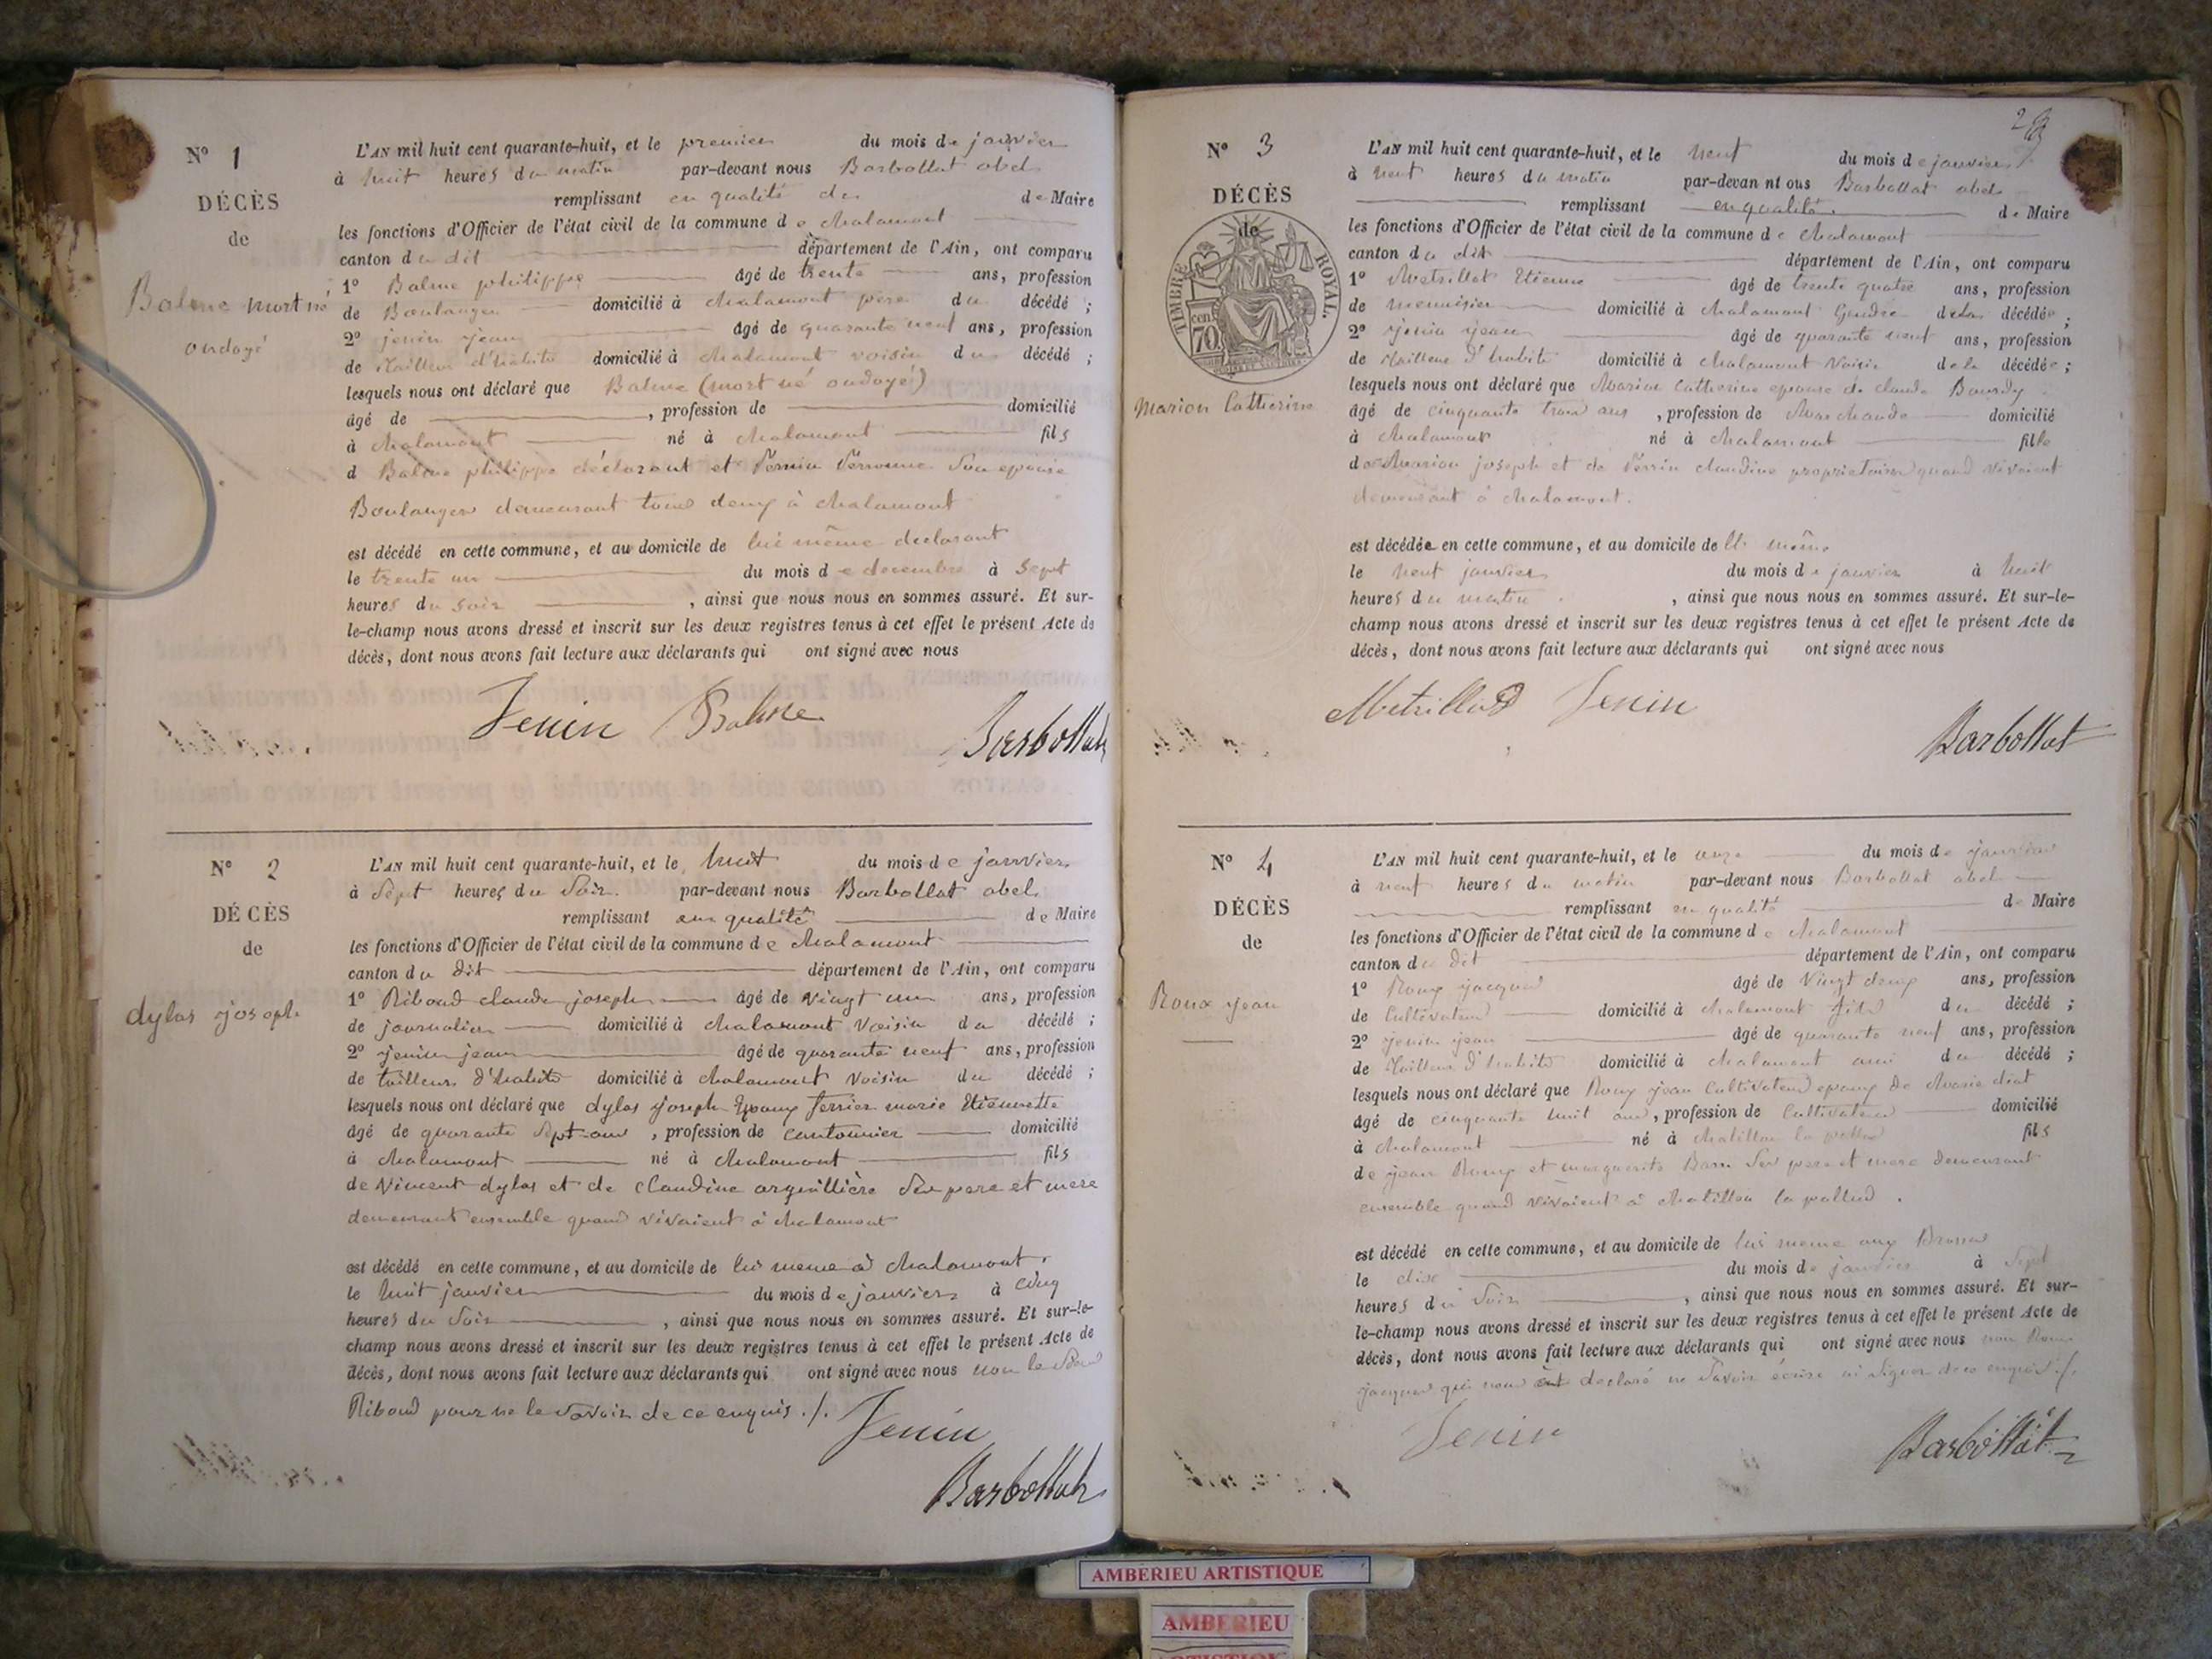 N° 1
DÉCÈS
de
Balme mort né
ondoyé
L'AN mil huit cent quarante-huit, et le premier du mois de janvier
à huit heures du matin par-devant nous Barbollat abel
remplissant en qualité de de Maire
les fonctions d'Officier de l'état civil de la commune de chalamont
canton du dit département de l'Ain, ont comparu
1° Balme philippe âgé de trente ans, profession
de Boulanger domicilié à chalamont père du décédé ;
2° jenin jean âgé de quarante neuf ans, profession
de tailleur d'habits domicilié à chalamont voisin du décédé ;
lesquels nous ont déclaré que Balme (mort né ondoyé)
âgé de , profession de domicilié
à chalamont né à chalamont fils
d Balme philippe déclarant et son epouse
Boulanger demeurant tous deux à chalamont
est décédé en cette commune, et au domicile de lui même declarant
le trente un du mois de decembre à sept
heures du soir , ainsi que nous nous en sommes assuré. Et sur-
le-champ nous avons dressé et inscrit sur les deux registres tenus à cet effet le présent Acte de
décès, dont nous avons fait lecture aux déclarants qui ont signé avec nous
Jenin Balme
Barbollat
N° 2
DÉCÈS
de
dylas joseph
L'AN mil huit cent quarante-huit, et le huit du mois de janvier
à sept heures du soir par-devant nous Barbollat abel
remplissant en qualité de Maire
les fonctions d'Officier de l'état civil de la commune de chalamont
canton du dit département de l'Ain, ont comparu
1° Riboud claude joseph âgé de vingt un ans, profession
de journalier domicilié à chalamont voisin du décédé ;
2° jenin jean âgé de quarante neuf ans, profession
de tailleur d'habits domicilié à chalamont voisin du décédé ;
lesquels nous ont déclaré que dylas joseph Epoux ferrier marie Etiennette
âgé de quarante sept ans , profession de cantonnier domicilié
à chalamont né à chalamont fils
de Vincent dylas et de claudine arguillière ses pere et mere
demeurant ensemble quand vivaient à chalamont
est décédé en cette commune, et au domicile de lui meme à chalamont.
le huit janvier du mois de janvier à cinq
heures du soir , ainsi que nous nous en sommes assuré. Et sur-le-
champ nous avons dressé et inscrit sur les deux registres tenus à cet effet le présent Acte de
décès, dont nous avons fait lecture aux déclarants qui ont signé avec nous non le
Riboud pour ne le savoir de ce enquis ./.
Jenin
Barbollat
29
N° 3
DÉCÈS
de
TIMBRE ROYAL.
cen. 70
Marion Catherine
L'AN mil huit cent quarante-huit, et le neuf du mois de janvier
à neuf heures du matin par-devan nt ous Barbollat abel
remplissant en qualité de Maire
les fonctions d'Officier de l'état civil de la commune de chalamont
canton du dit département de l'Ain, ont comparu
1° Metrillat Etienne âgé de trente quatre ans, profession
de menuisier domicilié à chalamont Gendre dela décédée ;
2° jenin jean âgé de quarante neuf ans, profession
de tailleur d'habits domicilié à chalamont voisin dela décédée ;
lesquels nous ont déclaré que Marion catherine epouse de claude Bourdy
âgé de cinquante trois ans , profession de Marchande domicilié
à chalamont né à chalamont fille
de Marion joseph et de Perrin claudine proprietaires quand vivaient
demeurant à chalamont.
est décédée en cette commune, et au domicile de
le neuf janvier du mois de janvier à huit
heures du matin , ainsi que nous nous en sommes assuré. Et sur-le-
champ nous avons dressé et inscrit sur les deux registres tenus à cet effet le présent Acte de
décès, dont nous avons fait lecture aux déclarants qui ont signé avec nous
Metrillat Jenin
Barbollat
N° 4
DÉCÈS
de
Roux jean
L'AN mil huit cent quarante-huit, et le onze du mois de janvier
à neuf heures du matin par-devant nous Barbollat abel
remplissant en qualité de Maire
les fonctions d'Officier de l'état civil de la commune de chalamont
canton du dit département de l'Ain, ont comparu
1° Roux jacques âgé de vingt deux ans, profession
de cultivateur domicilié à chalamont fils du décédé ;
2° jenin jean âgé de quarante neuf ans, profession
de tailleur d'habits domicilié à chalamont ami du décédé ;
lesquels nous ont déclaré que Roux jean cultivateur epoux de Marie
âgé de cinquante huit ans , profession de cultivateur domicilié
à chalamont né à chatillon la fils
de jean Roux et marguerite ses pere et mere demeurant
ensemble quand vivaient à chatillon la .
est décédé en cette commune, et au domicile de lui meme aux
le dix du mois de janvier à sept
heures du soir , ainsi que nous nous en sommes assuré. Et sur-
le-champ nous avons dressé et inscrit sur les deux registres tenus à cet effet le présent Acte de
décès, dont nous avons fait lecture aux déclarants qui ont signé avec nous non Roux
jacques qui nous declaré ne savoir écrire ni signer de ce enquis ./.
Jenin
Barbollat
AMBERIEU ARTISTIQUE
AMBERIEU
ARTISTIQUE